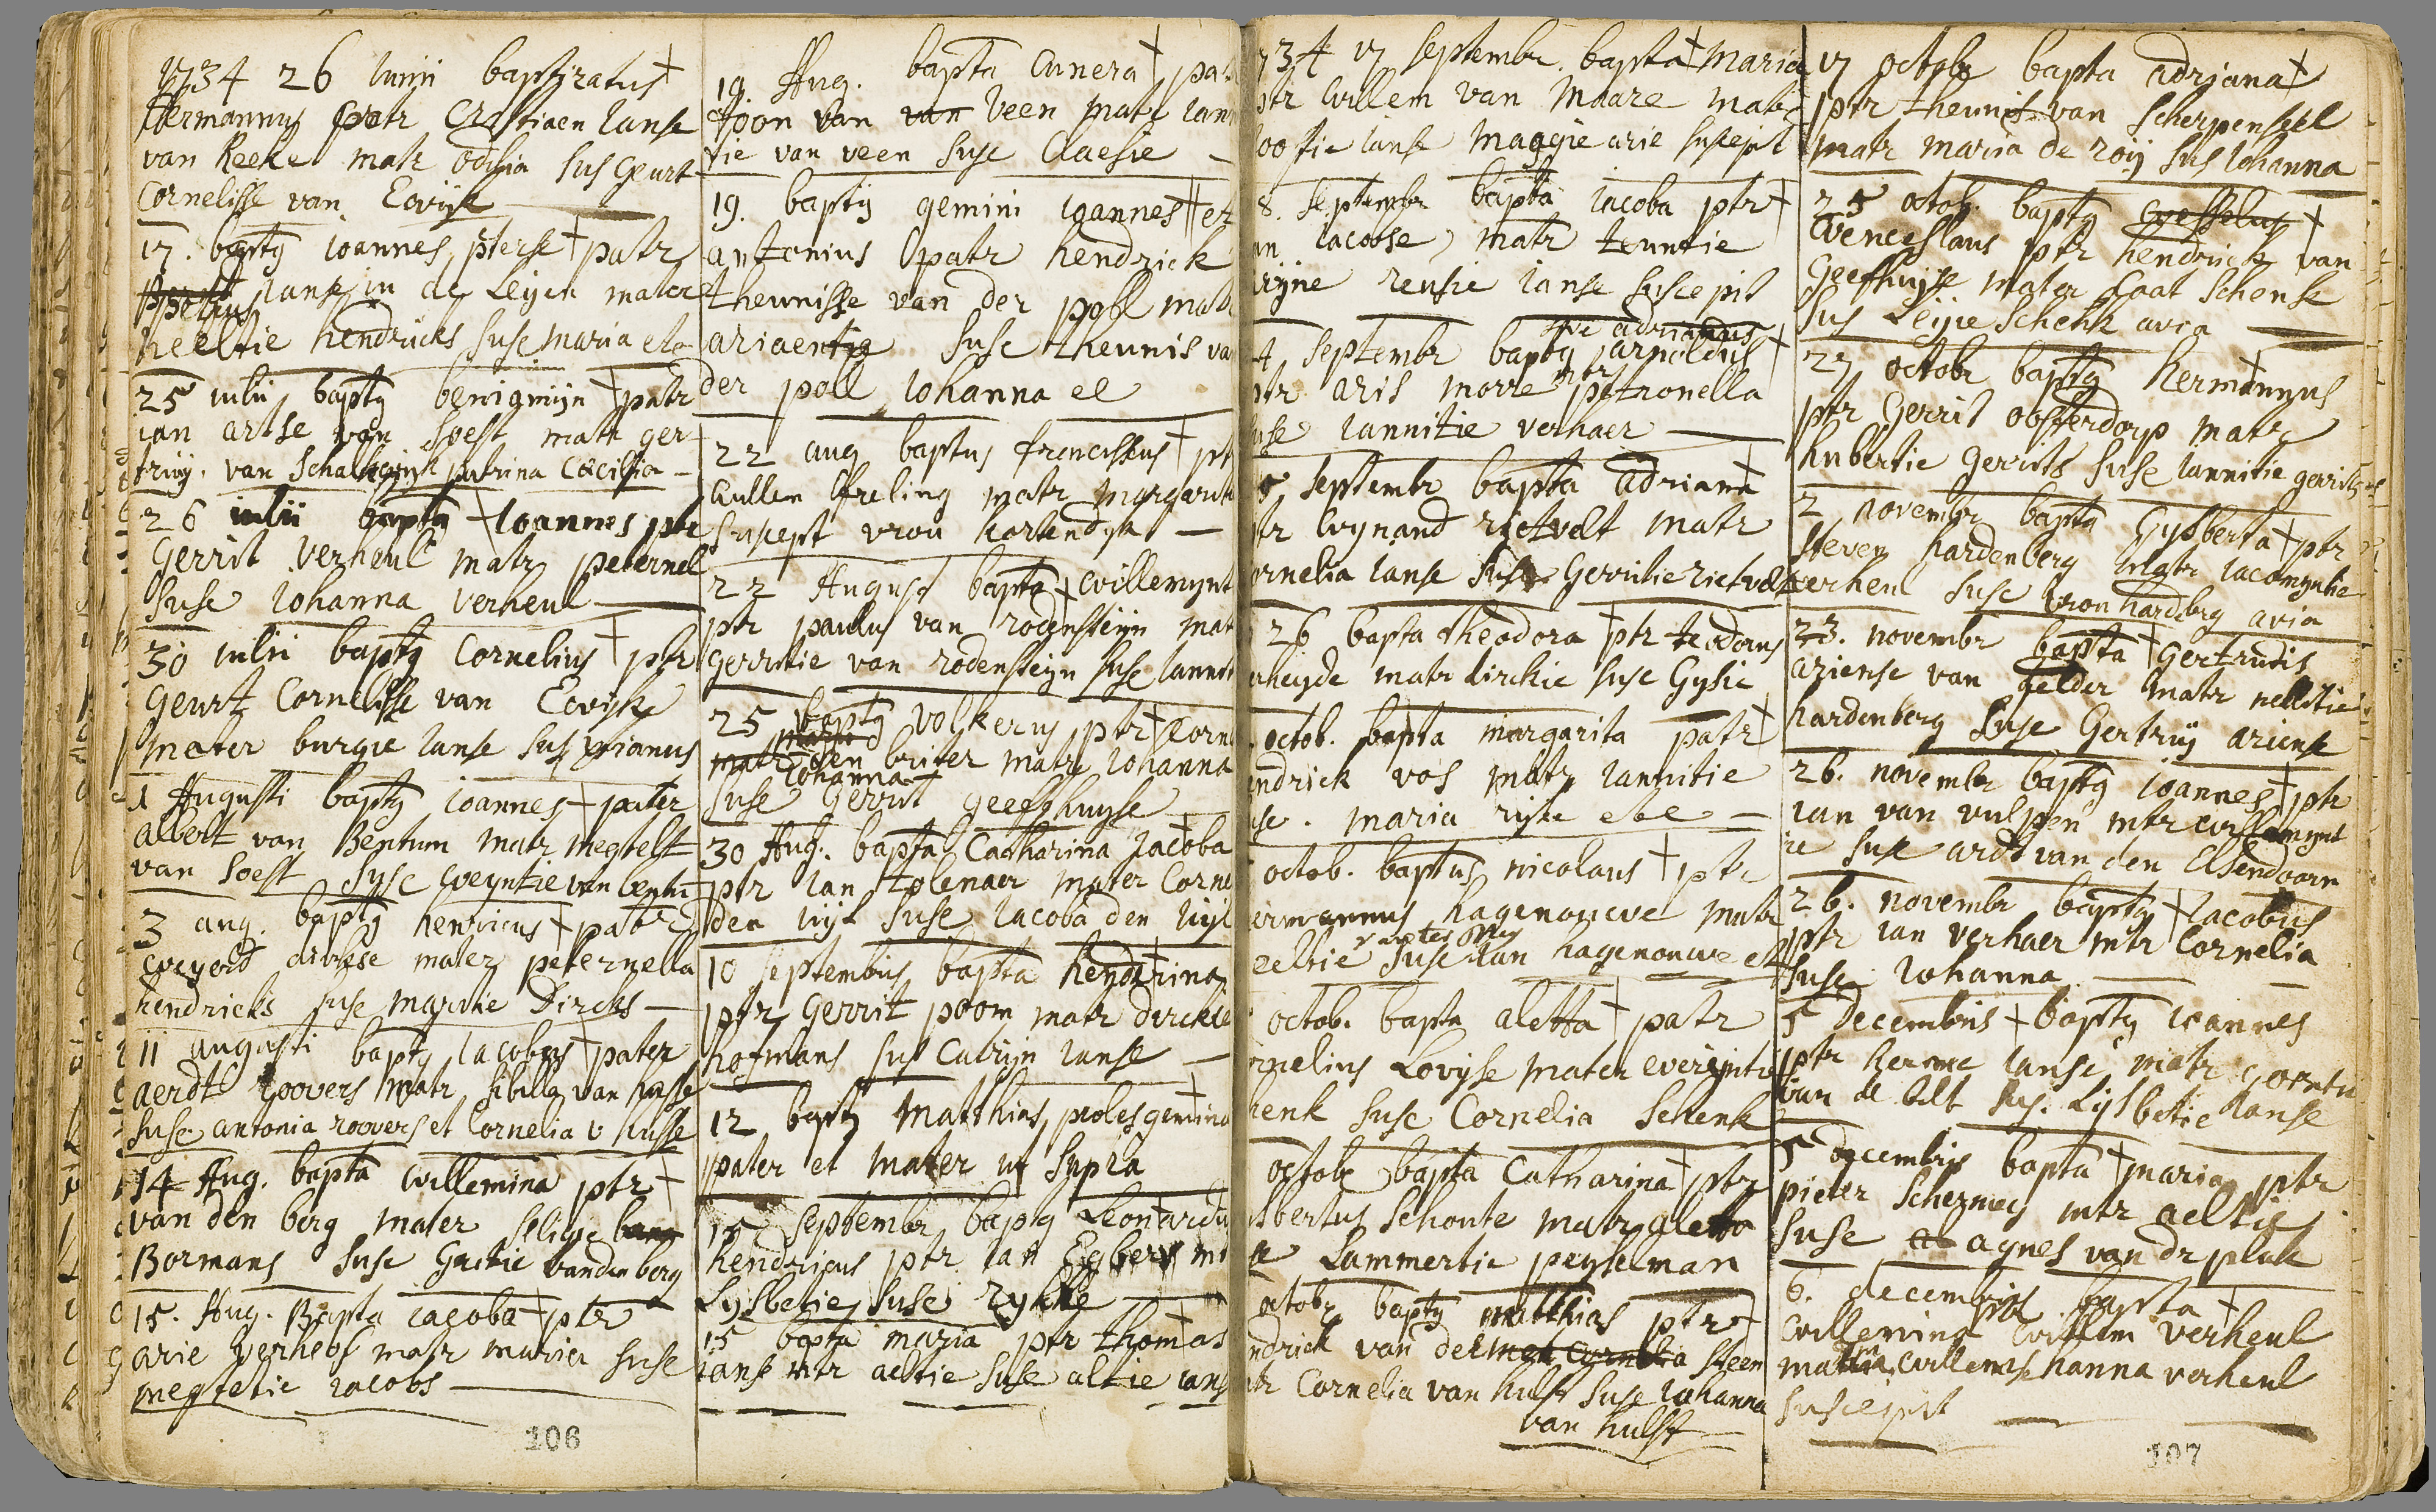 1734 26 iunii baptizatus †
Hermannus patr Cristiaen Janse
van Reeke matr odilia sus Geurt
Cornelisse van Ewijk
17. bapty Joannes pterse † patr
petrus Janse in de Leijen mater
neeltie hendricks suse maria
25 iulii bapty benignijn † patr
ian artse van soest matr ger
truij. van Schalkwijk patrina Cecilia
26 iulii bapty † Joannes ptr
Gerrit verheul matr peternel
suse Johanna verheul
30 iulii bapty Cornelius † ptr
Geurt Cornelisse van Ewijk
mater burgie Janse sus
1 Augusti bapty ioannes † pater
albert van Bentum matr megtelt
van soest suse weyntie van bentu
3 aug. bapty henricus † patr
weyert dirkse mater peternella
hendricks suse marrtie Dircks
11 augusti bapty Jacobus † pater
aerdt roovers matr sibilla van husse
suse antonia roovers et Cornelia v husse
14 Aug. bapta willemina ptr †
van den berg mater seligie
Bormans suse Grietie vanden berg
15. Aug. Bapta iacoba † ptr
arie verhoef matr maria suse
megtetie iacobs
106
19 Aug. bapta Cunera † pa
Toon van van Veen matr Jan
tie van veen suse Claesie
19. bapty gemini ioannes † et
antonius patr hendrick
theunisse van der poll matr
ariaentie suse theunis van
der poll Johanna ec
22 aug baptus franciscus † pt
willem freling matr margarit
suscept vrou kortendijk
22 August bapta † willemynt
ptr paulus van rodensteijn mat
gerritie van rodensteijn suse Jannit
25 bapty volkerus ptr † Corn
matr den briter matr Johanna
Johanna
suse Gerrit geefhuyse
30 Aug. bapta Catharina Jacoba
ptr Jan tolenaer mater Corne
den uijl suse Jacoba den uijl
10 septembris bapta hendrina
ptr Gerrit poom matr dirckie
hofmans sus Catrijn Janse
12 bapty Matthias, proles gemina
pater et mater ut supra
15 septembr bapty Leonardu
hendricus ptr Jan Egbers m
Lysbetie suse
15 bapta maria ptr thomas
ianse mtr aeltie suse altie ians
734 17 septembr. bapta † maria
ptr willem van Maare matr
ootie ianse maggie arie suscepit
8. septembr bapta iacoba ptr †
an Jacobse matr teuntie
rijne reusie ianse suscepit
sive adrianus
4 septembr bapty arnoldus †
ptr aris morre mtr petronella
suse Jannitie verhaer
5 septembr bapta adriana †
ptr wynand rietvelt matr
ornelia Janse suse Gerritie rietvelt
26 bapta theodora † ptr teodorus
heyde matr dirckie suse Gysie
octob. bapta margarita patr †
endrick vos matr Jannitie
use. maria
octob. baptus nicolaus † ptr
ermannus hagenouwe matr
eeltie suse Jan hagenouwe et
octob. bapta aletta † patr
rnelius Lovyse mater evereyntie
henk suse Cornelia Schenk
octob bapta Catharina † ptr
sbertus Schoute matr aletta
se Lammertie peyselman
octobr bapty matthias ptr †
ndrick van der met Cornelia steen
tr Cornelia van hulst suse Johanna
van hulst
17 octobr bapta adriana †
ptr theunis van Scherpenseel
matr maria de roij sus Johanna
25 octob. bapty wesselus †
Wenceslaus ptr hendrick van
Geefhuyse mater Caat Schenk
sus Leijie Schenk avia
27 octobr bapty hermannus
ptr Gerrit oosterdorp matr
hubertie gerrits suse Jannitie gerrits
2 novembr bapta Gysberta † ptr
steven hardenberg matr Jacomyntie
verheul suse vrou hardberg avia
23. novembr bapta † Gertrudis
ariense van gelder matr nelletie
hardenberg suse Gertruij ariense
26. novembr bapty ioannes † ptr
ian van vulpen mtr willemynt
ie suse ardt van den Elsendoorn
26. novembr bapty † Jacobus
ptr ian verhaer mtr Cornelia
suse Johanna
5 Decembris † bapty ioannes
ptr harme Janse matr
van de bilt sus. Lijsbetie hanse
5 decembris bapta † maria ptr
pieter Schermey mtr aeltie
suse agnes van dr pluk
6. decembris bapta †
willemina ptr willem verheul
matr willemse hanna verheul
suscepit
107